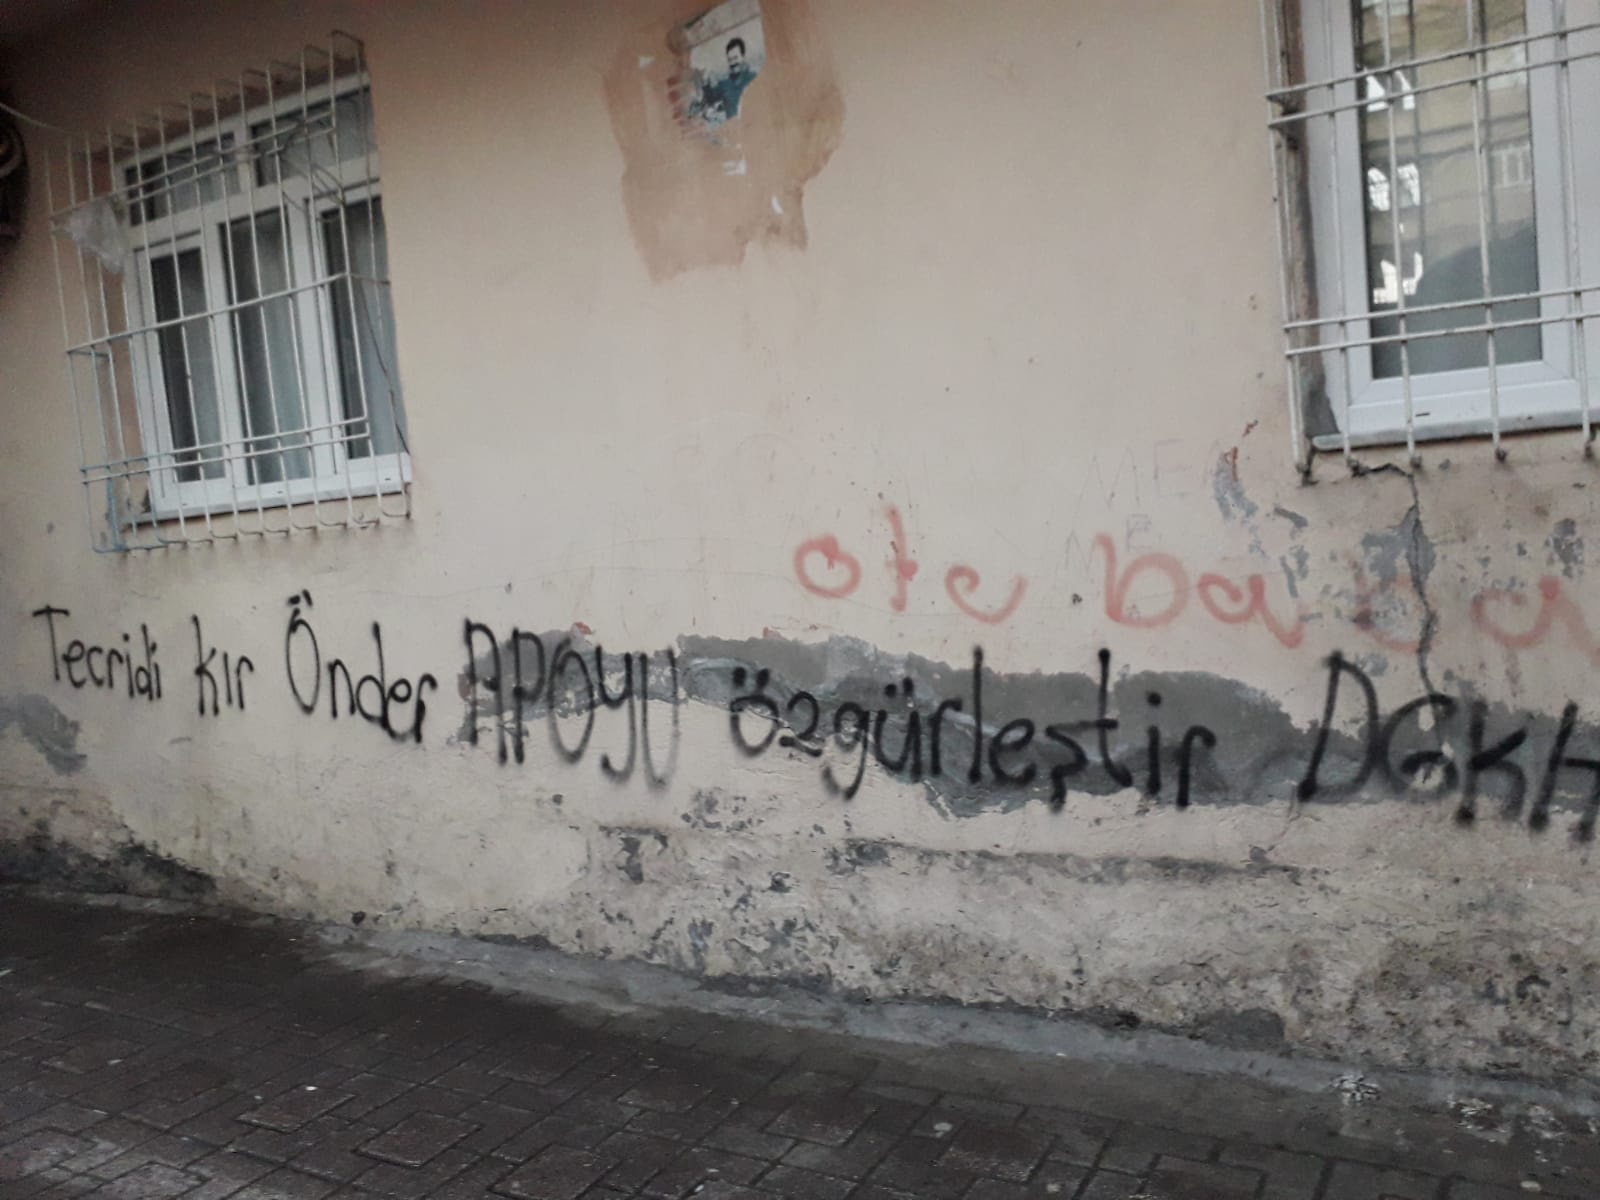 ote baba
Tecridi kır Önder APOYU özgürleştir DGKH